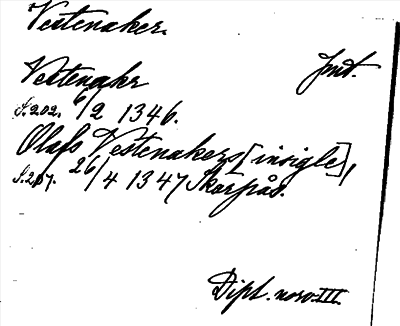 Vestenaker.
Jmt.
Vestenakr
S. 202. 6/2 1346.
Olafs Vestenakers [insigle],
S. 207. 26/4 1347 Skarpås.
Dipl. norv. III.